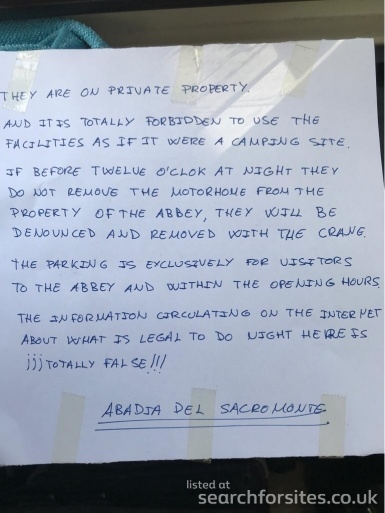 THEY ARE ON PRIVATE PROPERTY.
AND IT IS TOTALLY FORBIDDEN TO USE THE
FACILITIES AS IF IT WERE A CAMPING SITE.
IF BEFORE TWELVE O'CLOK AT NIGHT THEY
DO NOT REMOVE THE MOTORHOME FROM THE
PROPERTY OF THE ABBEY, THEY WILL BE
DENOUNCED AND REMOVED WITH THE CRANE.
THE PARKING IS EXCLUSIVELY FOR VISITORS
TO THE ABBEY AND WITHIN THE OPENING HOURS.
THE INFORMATION CIRCULATING ON THE INTERNET
ABOUT WHAT IS LEGAL TO DO NIGHT HERE IS
¡¡¡TOTALLY FALSE!!!
ABADIA DEL SACROMONTE
listed at
searchforsites.co.uk